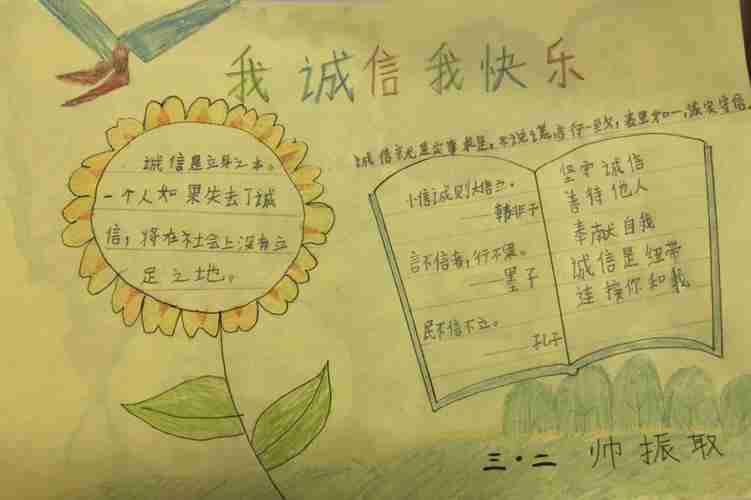 我诚信我快乐
诚信是立身之本。
一个人如果失去了诚
信，将在社会上没有立
足之地。
诚信就是实事求是，不说谎言行一致，表里如一，诚实守信。
小信诚则大信立。
——韩非子
言不信者，行不果。
——墨子
民不信不立。
——孔子
坚守诚信
善待他人
奉献自我
诚信是纽带
连接你和我
三·二 帅振取